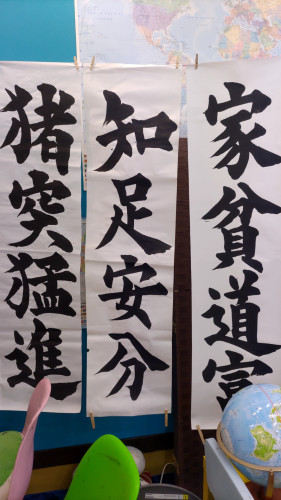 家貧道富
知足安分
猪突猛進